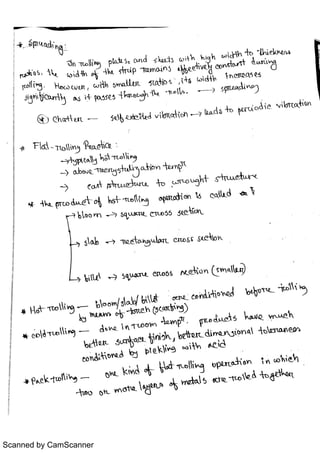 * Spreading:
In rolling plates, and sheets with high width to thickness
ratios, the width of the strip remains effectively constant during
rolling. However, with smaller ratios, its width increases
significantly as it passes through the rolls. → spreading
* Chatter — self excited vibration → leads to periodic vibration
* Flat-Rolling Practice:
→ typically hot rolling
→ above recrystallization temp
→ cast structure to wrought structure
* the product of hot-rolling operation is called
→ bloom → square cross section
→ slab → rectangular cross section
→ billet → square cross section (smaller)
* Hot rolling — bloom/slab/billet are conditioned before rolling
by means of torch (scarfing)
* cold rolling — done in room temp. products have much
better surface finish, better dimensional tolerances
conditioned by pickling with acid
* Pack-rolling — one kind of flat rolling operation in which
two or more layers of metals are rolled together
Scanned by CamScanner